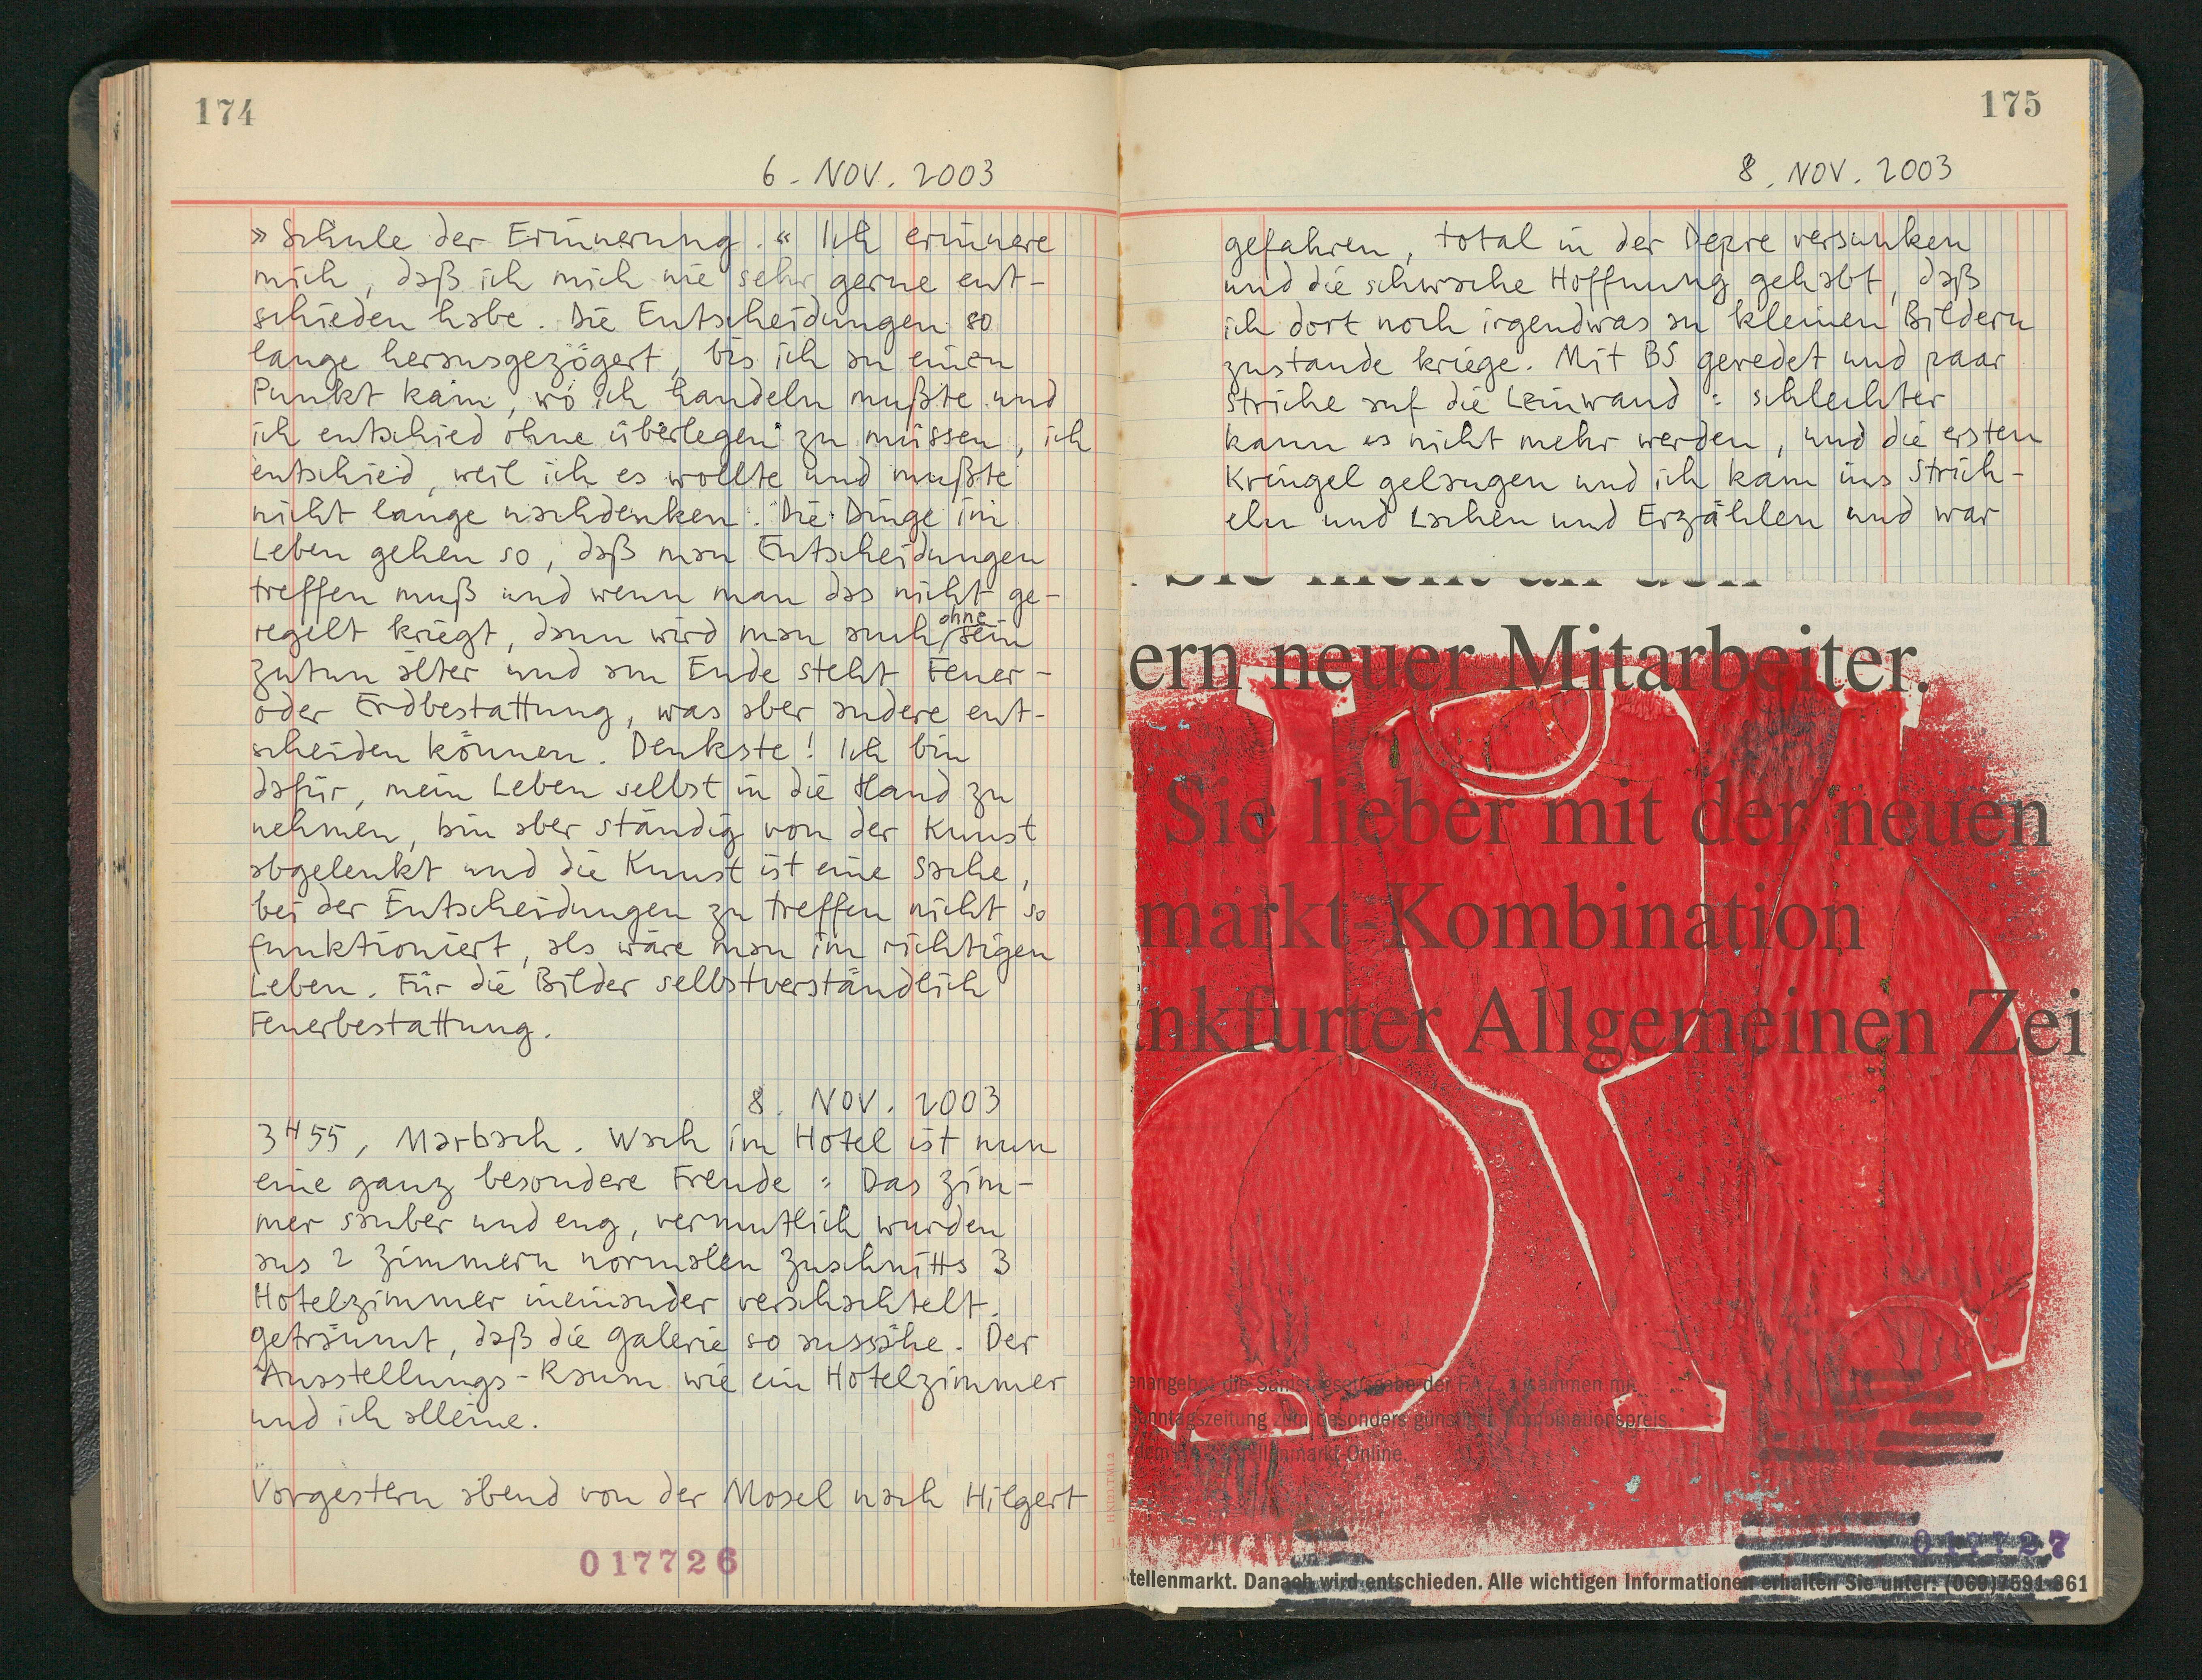 174
6. NOV. 2003
»Schule der Erinnerung.« Ich erinnere
mich, daß ich mich nie sehr gerne ent-
schieden habe. Die Entscheidungen so
lange herausgezögert, bis ich an einen
Punkt kam, wo ich handeln mußte und
ich entschied ohne überlegen zu müssen, ich
entschied, weil ich es wollte und mußte
nicht lange nachdenken. Die Dinge im
Leben gehen so, daß man Entscheidungen
treffen muß und wenn man das nicht ge-
regelt kriegt, dann wird man auch ohne sein
zutun älter und am Ende steht Feuer-
oder Erdbestattung, was aber andere ent-
scheiden können. Denkste! Ich bin
dafür, mein Leben selbst in die Hand zu
nehmen, bin aber ständig von der Kunst
abgelenkt und die Kunst ist eine Sache,
bei der Entscheidungen zu treffen nicht so
funktioniert, als wäre man im richtigen
Leben. Für die Bilder selbstverständlich
Feuerbestattung.
8. NOV. 2003
3H55, Marbach. Wach im Hotel ist nun
eine ganz besondere Freude: Das Zim-
mer sauber und eng, vermutlich wurden
aus 2 Zimmern normalen Zuschnitts 3
Hotelzimmer ineinander verschachtelt.
geträumt, daß die Galerie so aussähe. Der
Ausstellungs-Raum wie ein Hotelzimmer
und ich alleine.
Vorgestern abend von der Mosel nach Hilgert
017726
175
8. NOV. 2003
gefahren, total in der Depre versunken
und die schwache Hoffnung gehabt, daß
ich dort noch irgendwas an kleinen Bildern
zustande kriege. Mit BS geredet und paar
Striche auf die Leinwand: schlechter
kann es nicht mehr werden, und die ersten
Kringel gelangen und ich kam ins Strich-
eln und Lachen und Erzählen und war
Sie nicht an den
ern neuer Mitarbeiter.
Sie lieber mit der neuen
markt-Kombination
nkfurter Allgemeinen Zei
enangebot die Samstagsausgabe der F.A.Z. zusammen mit
Sonntagszeitung zum besonders günstigen Kombinationspreis.
dem Stellenmarkt-Online.
017727
tellenmarkt. Danach wird entschieden. Alle wichtigen Informationen erhalten Sie unter: (069)7591-861